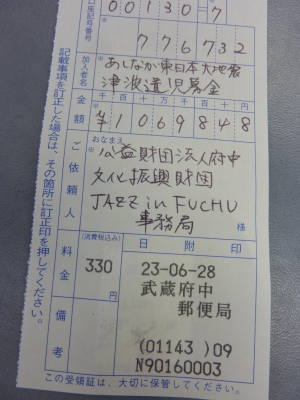 口座記号番号
00130-7
776732
加入者名
※
あしなが東日本大地震
津波遺児募金
金額
千百十万千百十円
¥1069848
ご依頼人
※
おなまえ
公益財団法人府中
文化振興財団
JAZZ in FUCHU
事務局
様
料金
(消費税込み)
330
円
日附印
23-06-28
武蔵府中
郵便局
備考
(01143 )09
N90160003
この受領証は、大切に保管してください。
記載事項を訂正した場合は、その箇所に訂正印を押してください。